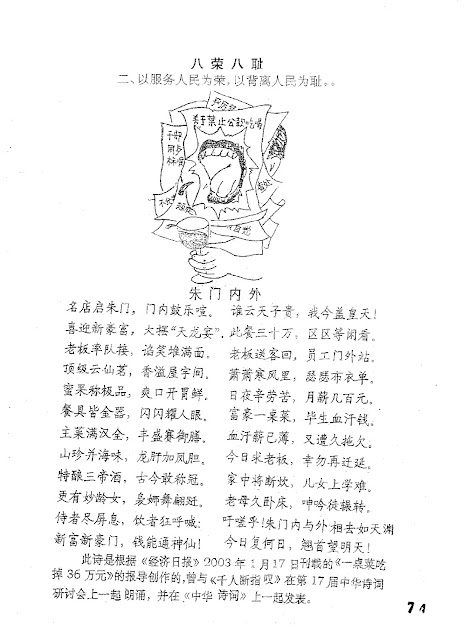 八荣八耻
二、以服务人民为荣,以背离人民为耻。。
关于禁止公款吃喝
朱门内外
名店启朱门,门内鼓乐喧。 谁云天子贵,我今盖皇天!
喜迎新豪富,大摆“天龙宴”。 此餐三十万,区区等闲看。
老板率队接,谄笑堆满面。 老板送客回,员工门外站。
顶级云仙茗,香溢屋宇间。 萧萧寒风里,瑟瑟布衣单。
蜜果称极品,爽口开胃鲜。 日夜辛劳苦,月薪几百元。
餐具皆金器,闪闪耀人眼。 富豪一桌菜,毕生血汗钱。
主菜满汉全,丰盛赛御膳。 血汗薪已薄,又遭久拖欠。
山珍并海味,龙肝加凤胆。 今日求老板,幸勿再迁延。
特酿三帝酒,古今敢称冠。 家中将断炊,儿女上学难。
更有妙龄女,袅娜舞翩跹。 老母久卧床,呻吟徒辗转。
侍者尽屏息,饮者狂呼喊: 吁嗟乎!朱门内与外相去如天渊
新富新豪门,钱能通神仙! 今日复何日,翘首望明天!
此诗是根据《经济日报》2003年1月17日刊载的《一桌菜吃
掉36万元》的报导创作的,曾与《千人断指叹》在第17届中华诗词
研讨会上一起朗诵,并在《中华诗词》上一起发表。
74